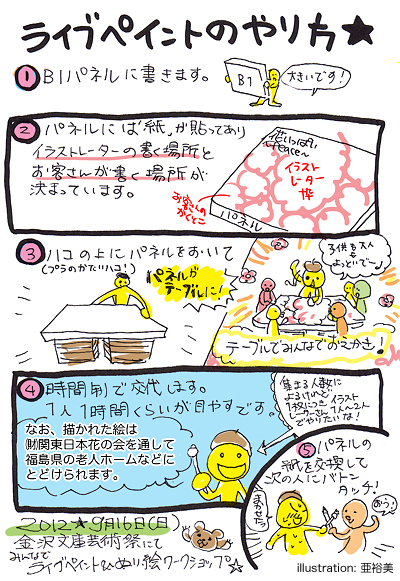 ライブペイントのやり方★
① B1パネルに書きます。
B1
大きいです!
② パネルには“紙”が貼ってあり
イラストレーターの書く場所と
お客さんが書く場所が
決まっています。
花いっぱい
Peace〜
イラスト
レーター
枠
お客さんの
かくとこ
パネル
③ ハコの上にパネルをおいて
(プラのかたいハコ!)
パネルが
テーブルに!
子供も大人も
よっといで〜
テーブルでみんなでおえかき!
④ 時間制で交代します。
1人1時間くらいが目やすです。
なお、描かれた絵は
(財)関東東日本花の会を通して
福島県の老人ホームなどに
とどけられます。
集まる人数に
よるけれど
1枚につきイラスト
レーターさん1人〜2人
でやりたいな!
⑤ パネルの
紙を交換して
次の人にバトン
タッチ!
まかせた
おう!
2012★9月16日(日)
金沢文庫芸術祭にて
みんなで
ライブペイントひぬり絵ワークショップ☆
illustration: 亜裕美